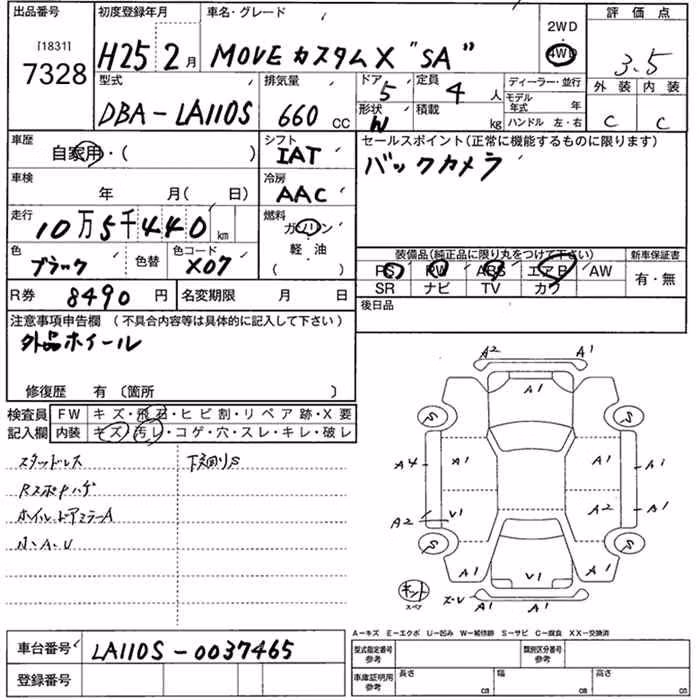 出品番号 初度登録年月 車名・グレード 評価点
[1831]
7328
H25 2月 MOVE カスタム X "SA" 2WD 4WD 3.5
型式 排気量 ドア 5 定員 4 人 ディーラー・並行 外装 内装
DBA-LA110S 660 CC 形状 W 積載 kg モデル年式 年 C C
ハンドル 左・右
車歴 シフト セールスポイント(正常に機能するものに限ります)
自家用・( ) IAT バックカメラ
車検 年 月( 日) 冷房 AAC
走行 10万5千440km 燃料 ガソリン・軽油( )
色 ブラック 色替 色コード X07
装備品(純正品に限り丸をつけて下さい) 新車保証書
PS PW ABS エアB AW 有・無
SR ナビ TV カワ
R券 8490円 名変期限 月 日 後日品
注意事項申告欄 (不具合内容等は具体的に記入して下さい)
外品ホイール
修復歴 有 〔箇所 〕
検査員 FW キズ・飛石・ヒビ割・リペア跡・X要
記入欄 内装 キズ・汚レ・コゲ・穴・スレ・キレ・破レ
スタッドレス 下回りS
RスポPハゲ
ホイル、ドアミラーA
N、A、U
A2 A1
A1
S S
A4 A1 A1 A1
A2 V1 A2 A1
S S
A1 V1 A1
キット スペア ズ・V A1 A1
A-キズ E-エクボ U-凹み W-補修跡 S-サビ C-腐食 XX-交換済
車台番号 LA110S-0037465 型式指定番号 参考 類別区分番号 参考
登録番号 車庫証明用 参考 長さ cm 幅 cm 高さ cm